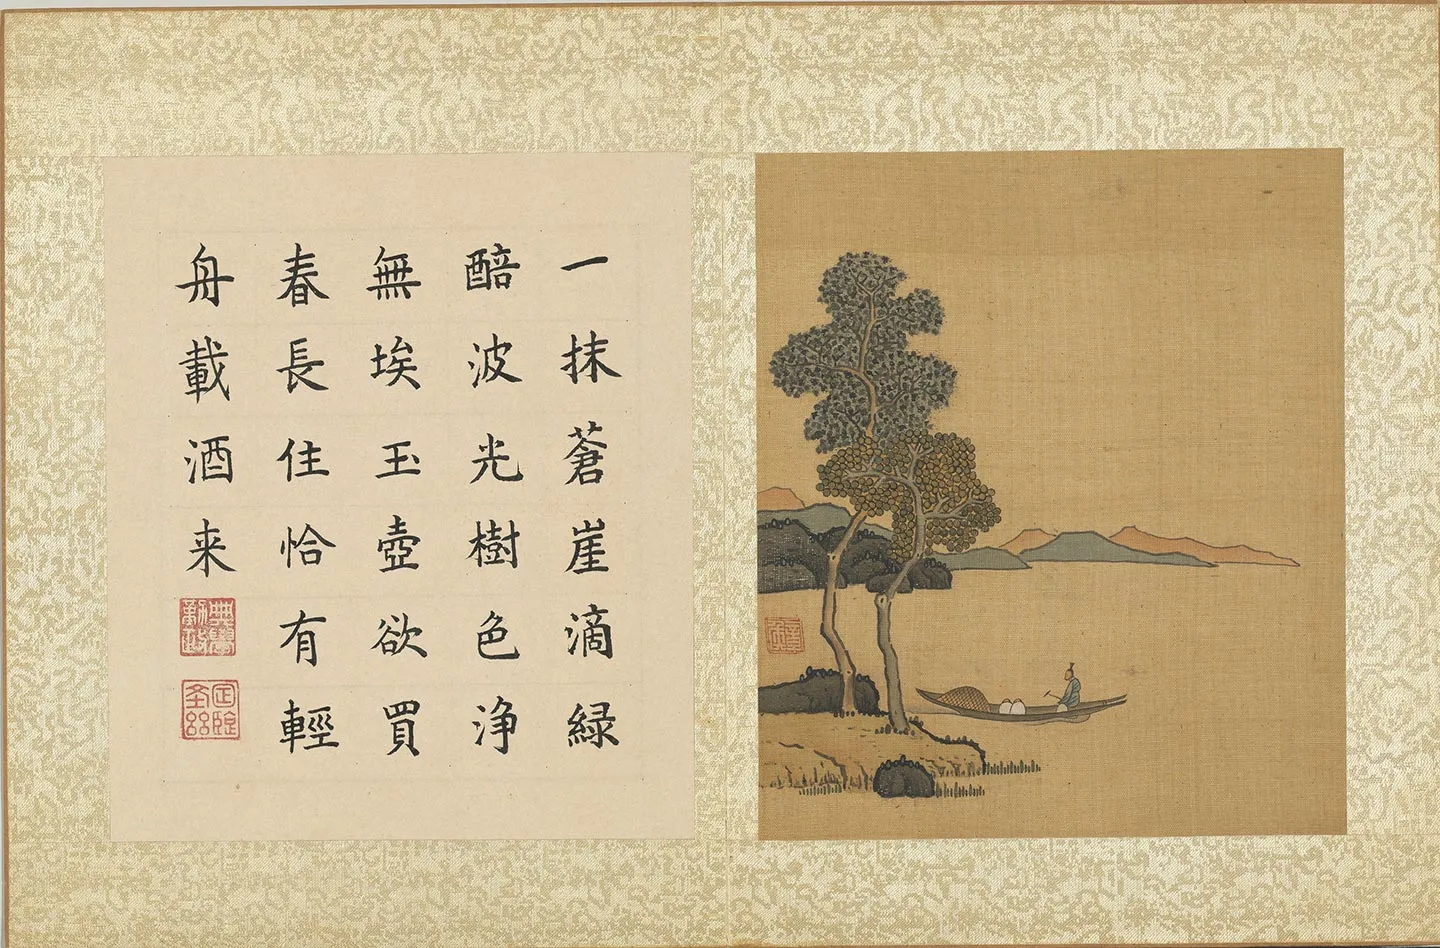 一抹蒼崖滴緑
醅波光樹色浄
無埃玉壺欲買
春長住恰有輕
舟載酒来